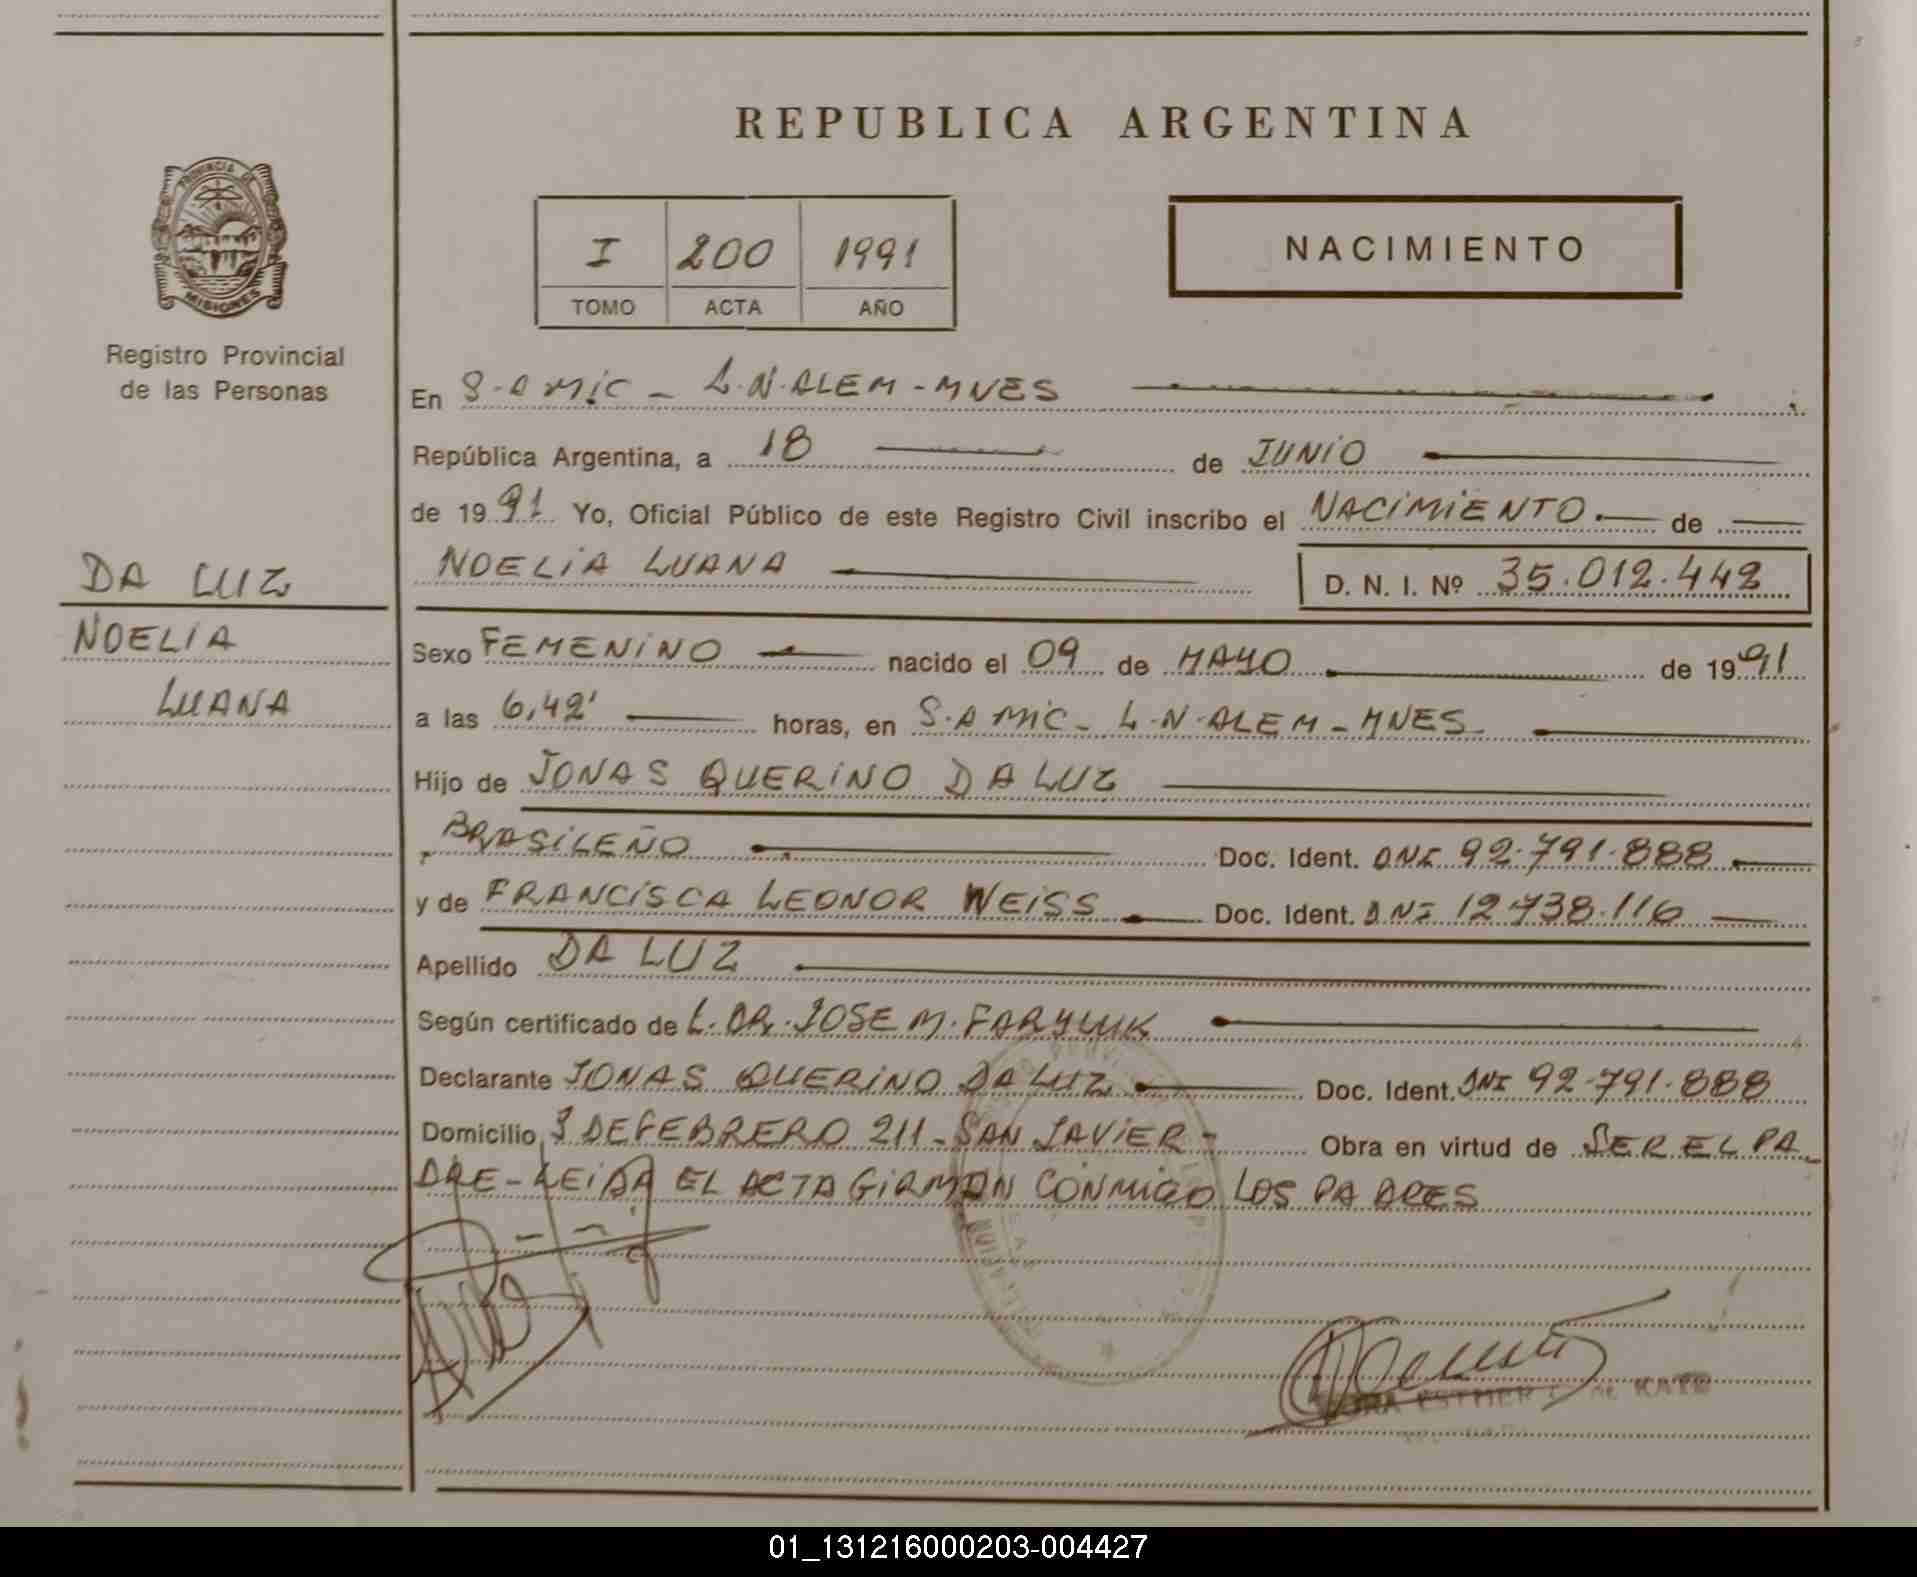 REPUBLICA ARGENTINA
PROVINCIA DE
MISIONES
Registro Provincial
de las Personas
I 200 1991
TOMO ACTA AÑO
NACIMIENTO
En S.AMIC - L.N.ALEM - MNES
República Argentina, a 18 de JUNIO
de 1991 Yo, Oficial Público de este Registro Civil inscribo el NACIMIENTO de
NOELIA LUANA D. N. I. Nº 35.012.442
DA LUZ
NOELIA
LUANA
Sexo FEMENINO nacido el 09 de MAYO de 1991
a las 6,42' horas, en S.AMIC - L.N.ALEM - MNES
Hijo de JONAS QUERINO DA LUZ
BRASILEÑO Doc. Ident. DNI 92.791.888
y de FRANCISCA LEONOR WEISS Doc. Ident. DNI 12.738.116
Apellido DA LUZ
Según certificado de L. DR. JOSE M. FARYLUK
Declarante JONAS QUERINO DA LUZ Doc. Ident. DNI 92.791.888
Domicilio 3 DE FEBRERO 211 - SAN JAVIER - Obra en virtud de SER EL PA-
DRE - LEIDA EL ACTA FIRMAN CONMIGO LOS PADRES
ESTHER
01_131216000203-004427